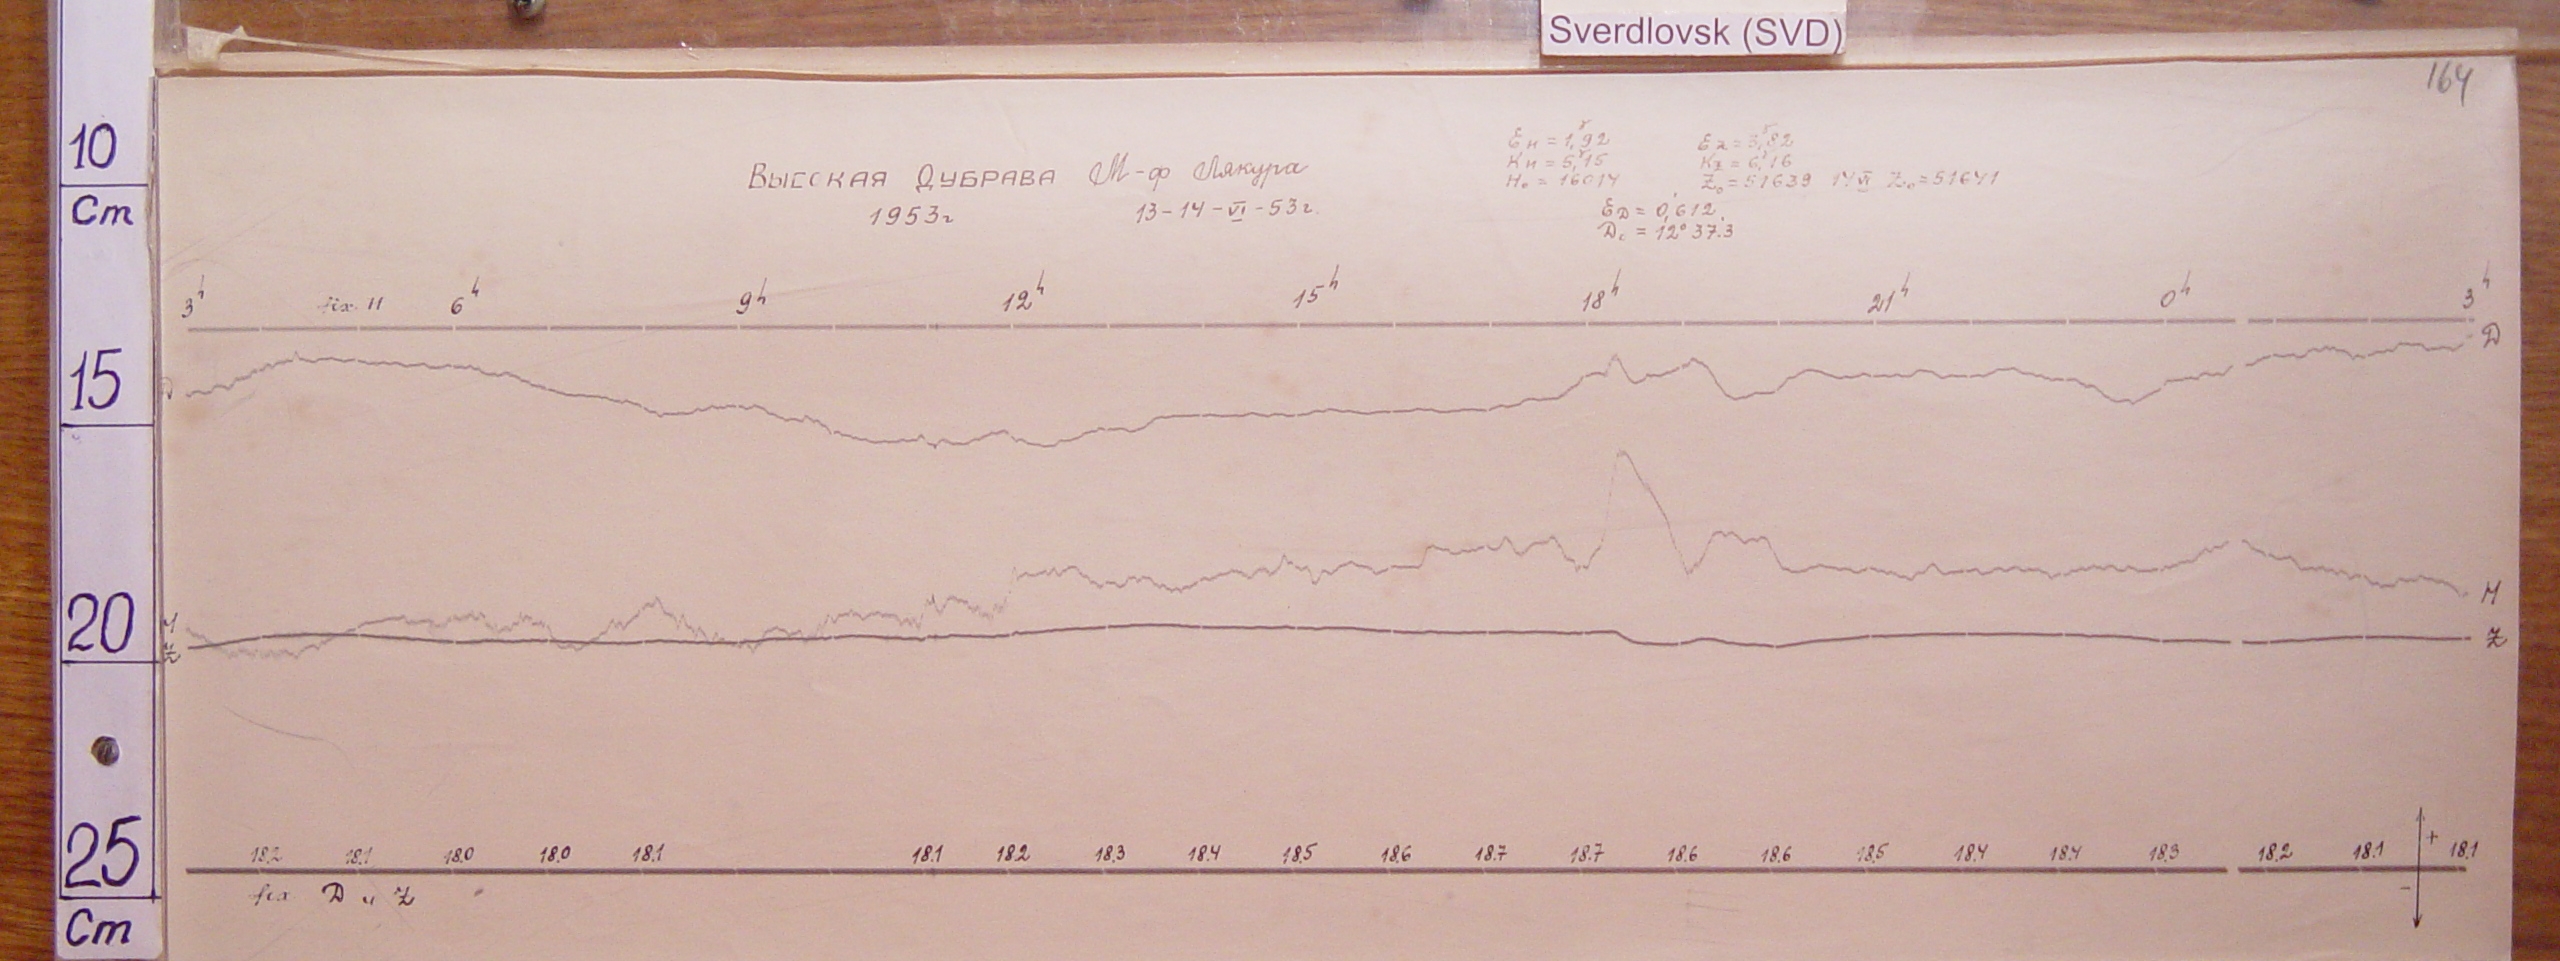 Sverdlovsk (SVD)
164
10
Cm
15
20
25
Cm
Высокая Дубрава М-ф Якура
1953г 13-14-VI-53г.
E_H = 1,ᵞ92 E_Z = 3,ᵞ82
K_H = 5,ᵞ15 K_Z = 6,ᵞ16
H₀ = 16014 Z₀ = 51639 14 VI Z₀ = 51641
E_D = 0,′612
D_c = 12° 37.3
3ʰ fix H 6ʰ 9ʰ 12ʰ 15ʰ 18ʰ 21ʰ 0ʰ 3ʰ
D D
H H
Z Z
18.2 18.1 18.0 18.0 18.1 18.1 18.2 18.3 18.4 18.5 18.6 18.7 18.7 18.6 18.6 18.5 18.4 18.4 18.3 18.2 18.1 18.1
+
-
fix D и Z